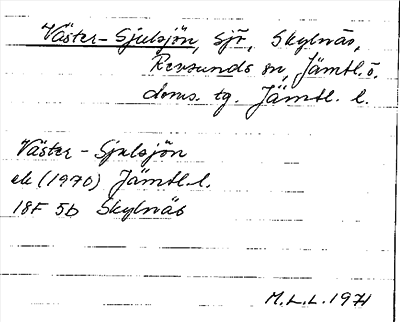 Väster-Sjulsjön, sjö, Skylnäs,
Revsunds sn, Jämtl. ö.
doms. tg. Jämtl. l.
Väster-Sjulsjön
ek (1970) Jämtl. l.
18F 5b Skylnäs
M.L.L. 1971